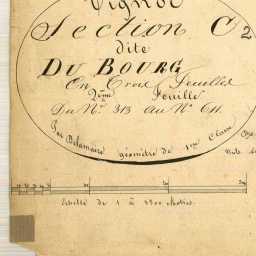 Section C2
dite
DU BOURG
En Trois Feuilles
2ème Feuille
Du N° 313 Au N° 611
Par Delamaire géomètre de 1re Classe
Echelle de 1 à 2500 Mètres.